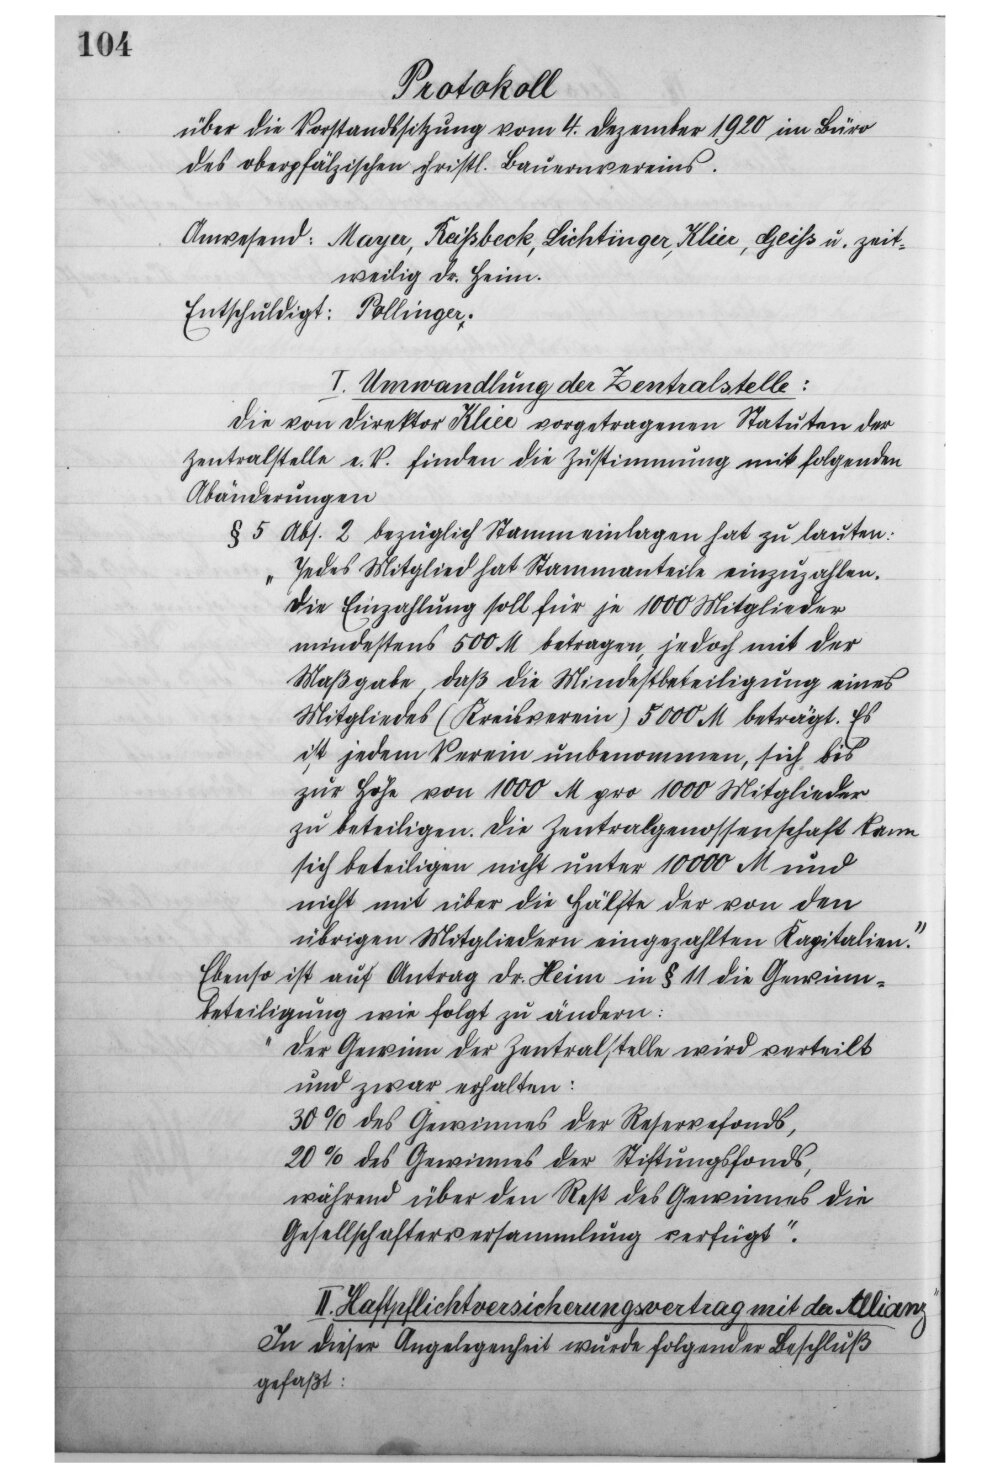 104
Protokoll
über die Vorstandssitzung vom 4. Dezember 1920 im Büro
des oberpfälzischen christl. Bauernvereins.
Anwesend: Mayer, Reißbeck, Lichtinger, Klier, Gleiß u. zeit-
weilig Dr. Heim.
Entschuldigt: Pollinger.
I. Umwandlung der Zentralstelle:
Die von Direktor Klier vorgetragenen Statuten der
Zentralstelle e.V. finden die Zustimmung mit folgenden
Abänderungen
§ 5 Abs. 2 bezüglich Stammeinlagen hat zu lauten:
„Jedes Mitglied hat Stammanteile einzuzahlen.
Die Einzahlung soll für je 1000 Mitglieder
mindestens 500 M betragen, jedoch mit der
Maßgabe, daß die Mindestbeteiligung eines
Mitgliedes (Kreisverein) 5000 M beträgt. Es
ist jedem Verein unbenommen, sich bis
zur Höhe von 1000 M pro 1000 Mitglieder
zu beteiligen. Die Zentralgenossenschaft kann
sich beteiligen nicht unter 10000 M und
nicht mit über die Hälfte der von den
übrigen Mitgliedern eingezahlten Kapitalien."
Ebenso ist auf Antrag Dr. Heim in § 11 die Gewinn-
beteiligung wie folgt zu ändern:
"Der Gewinn der Zentralstelle wird verteilt
und zwar erhalten:
30 % des Gewinnes der Reservefonds,
20 % des Gewinnes der Stiftungsfonds,
während über den Rest des Gewinnes die
Gesellschafterversammlung verfügt".
II. Haftpflichtversicherungsvertrag mit der Allianz"
In dieser Angelegenheit wurde folgender Beschluß
gefaßt: